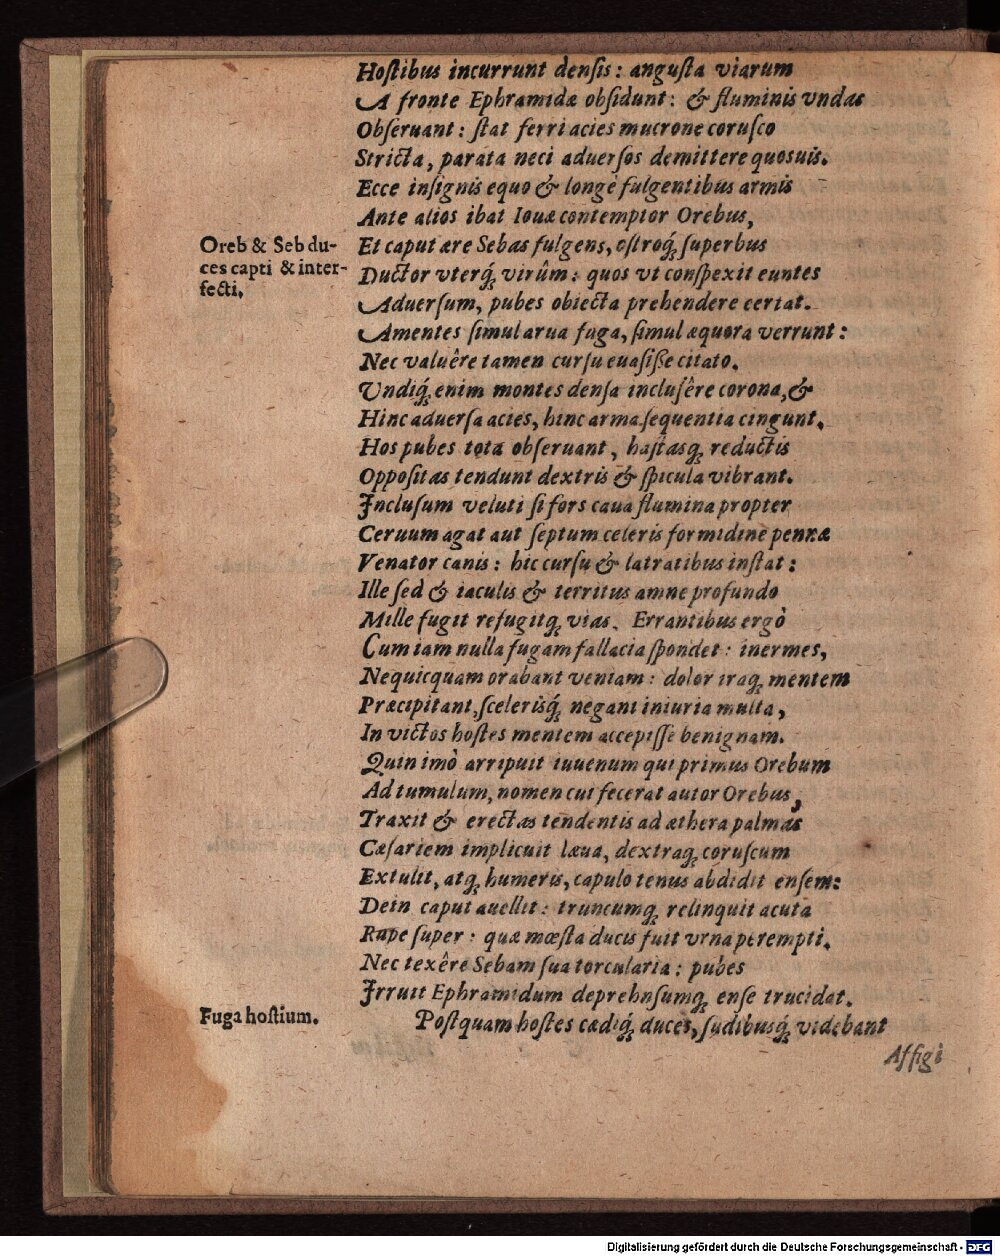 Hoſtibus incurrunt denſis: anguſta viarum
A fronte Ephramidæ obſidunt: & fluminis vndas
Obſeruant: ſtat ferri acies mucrone coruſco
Stricta, parata neci aduerſos demittere quosuis.
Ecce inſignis equo & longè fulgentibus armis
Ante alios ibat Iouæ contemptor Orebus,
Oreb & Seb du-
ces capti & inter-
fecti.
Et caput ære Sebas fulgens, oſtroq́; ſuperbus
Ductor vterq́; virûm: quos vt conſpexit euntes
Aduerſum, pubes obiecta prehendere certat.
Amentes ſimul arua fuga, ſimul æquora verrunt:
Nec valuêre tamen curſu euaſiſſe citato.
Vndiq́; enim montes denſa incluſêre corona, &
Hinc aduerſa acies, hinc arma ſequentia cingunt.
Hos pubes tota obſeruant, haſtasq; reductis
Oppoſitas tendunt dextris & ſpicula vibrant.
Incluſum veluti ſi fors caua flumina propter
Ceruum agat aut ſeptum celeris formidine pennæ
Venator canis: hic curſu & latratibus inſtat:
Ille ſed & iaculis & territus amne profundo
Mille fugit refugitq; vias. Errantibus ergò
Cum iam nulla fugam fallacia ſpondet: inermes,
Nequicquam orabant veniam: dolor iraq; mentem
Præcipitant, ſcelerisq́; negant iniuria multa,
In victos hoſtes mentem accepiſſe benignam.
Quin imò arripuit iuuenum qui primus Orebum
Ad tumulum, nomen cui fecerat autor Orebus,
Traxit & erectas tendentis ad æthera palmas
Cæſariem implicuit læua, dextraq; coruſcum
Extulit, atq; humeris, capulo tenus abdidit enſem:
Dein caput auellit: truncumq; relinquit acuta
Rupe ſuper: quæ mœſta ducis fuit vrna perempti.
Nec texêre Sebam ſua torcularia: pubes
Irruit Ephramidum deprehnſumq; enſe trucidat.
Fuga hoſtium.
Poſtquam hoſtes cædiq́; duces, ſudibusq́; videbant
Affigi
Digitalisierung gefördert durch die Deutsche Forschungsgemeinschaft - DFG